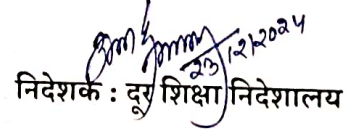 23/12/2024
निदेशक : दूर शिक्षा निदेशालय